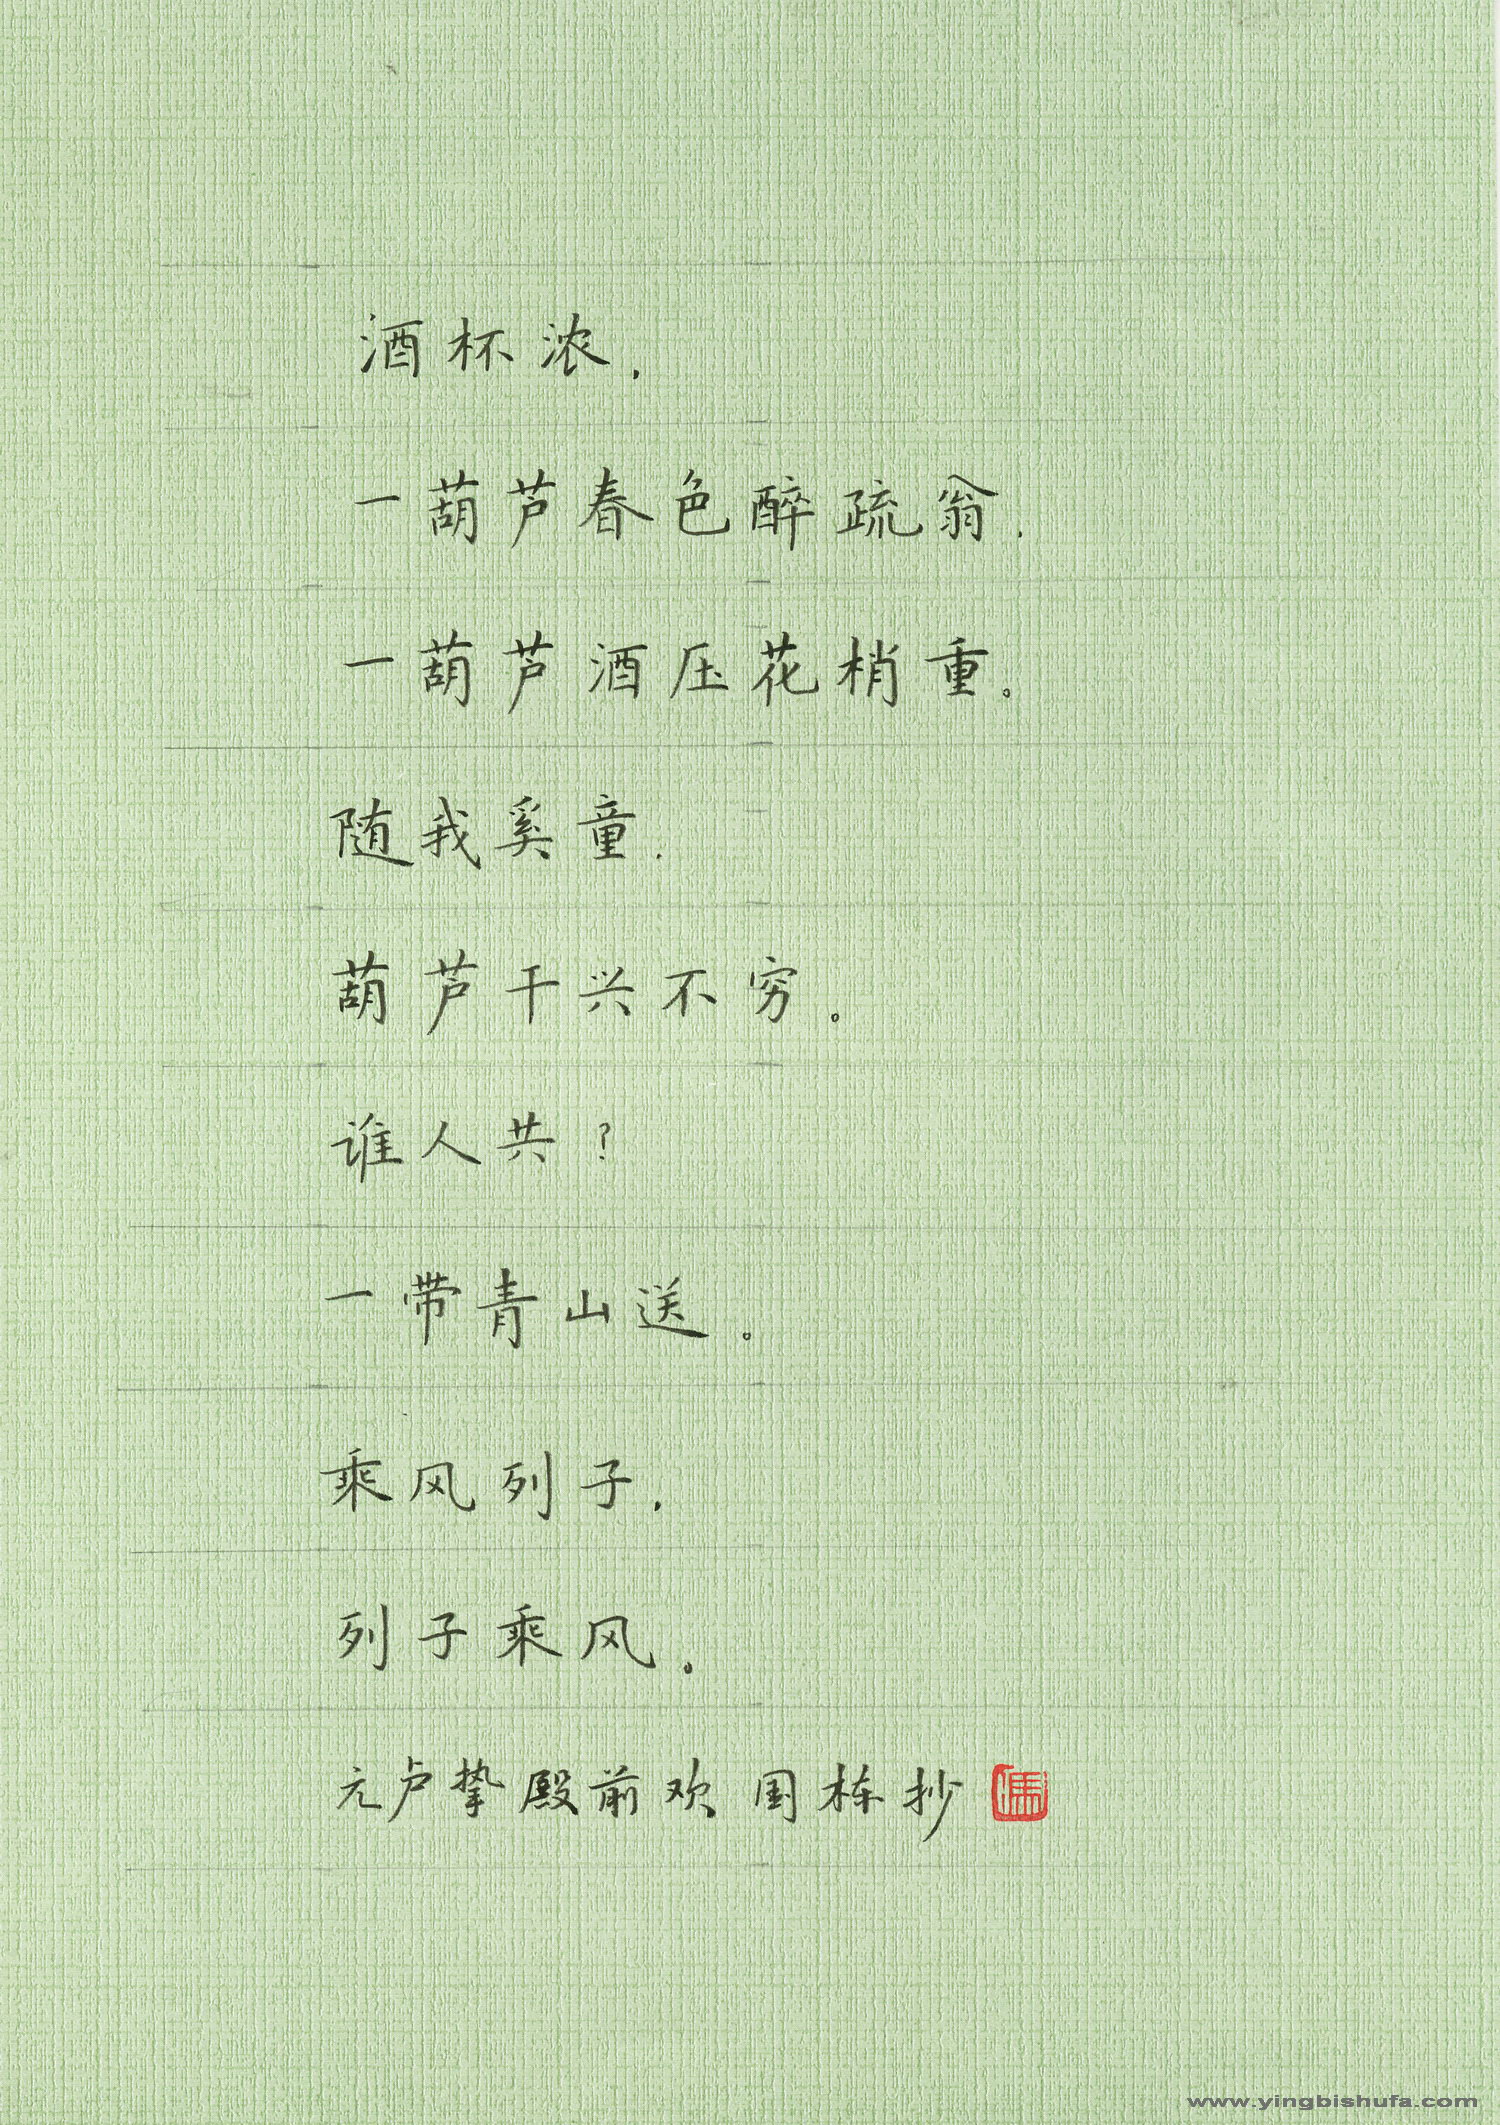 酒杯浓，
一葫芦春色醉疏翁，
一葫芦酒压花梢重。
随我奚童，
葫芦干兴不穷。
谁人共？
一带青山送。
乘风列子，
列子乘风。
元卢挚殿前欢 国栋抄
www.yingbishufa.com